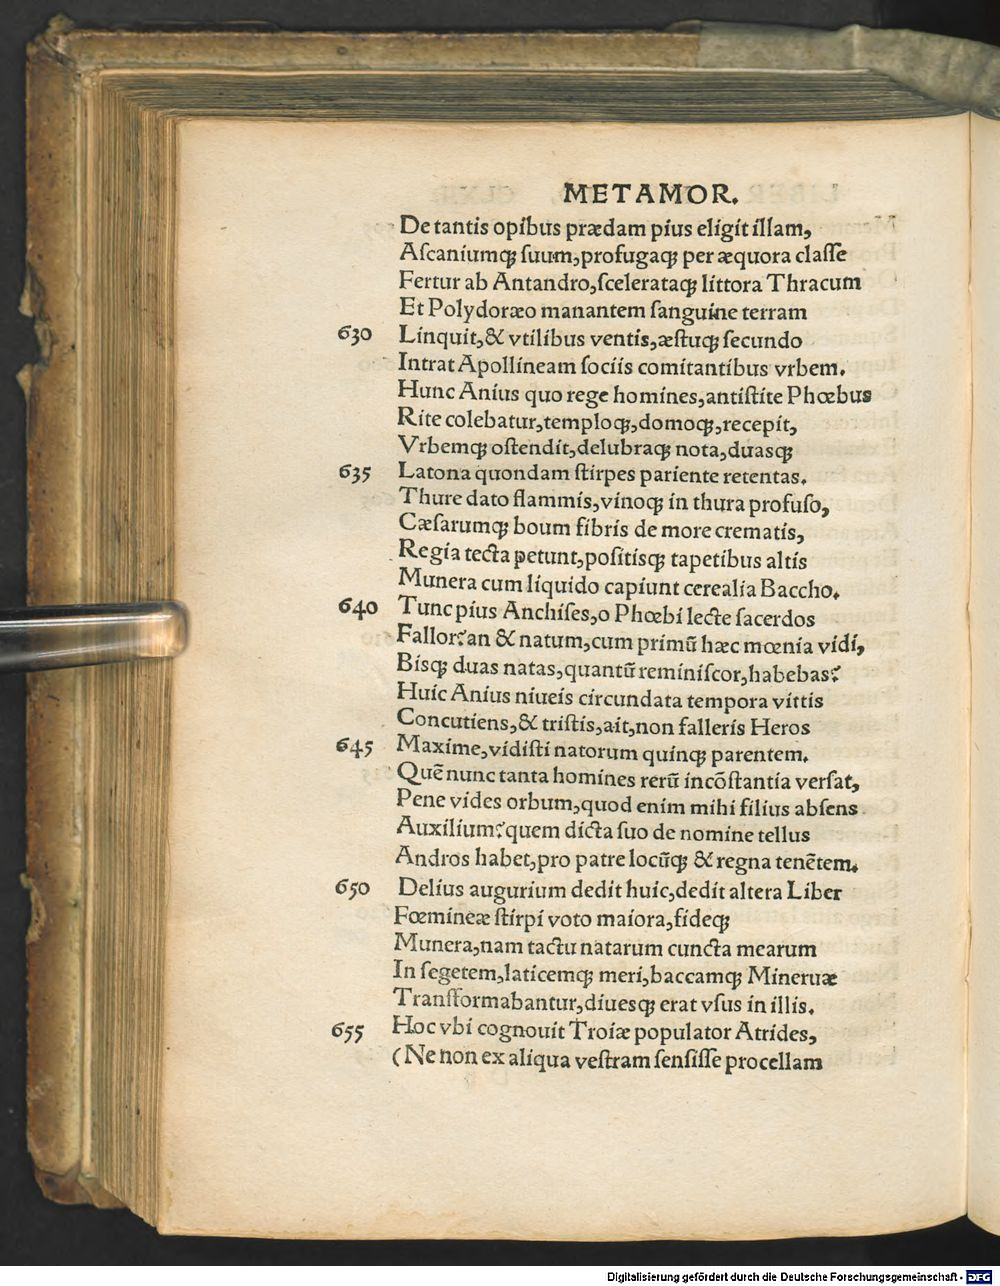 METAMOR.
De tantis opibus prædam pius eligit illam,
Aſcaniumqꝫ ſuum, profugaqꝫ per æquora claſſe
Fertur ab Antandro, ſcelerataqꝫ littora Thracum
Et Polydoræo manantem ſanguine terram
630 Linquit, & vtilibus ventis, æſtuqꝫ ſecundo
Intrat Apollineam ſociis comitantibus vrbem.
Hunc Anius quo rege homines, antiſtite Phœbus
Rite colebatur, temploqꝫ, domoqꝫ, recepit,
Vrbemqꝫ oſtendit, delubraqꝫ nota, duasqꝫ
635 Latona quondam ſtirpes pariente retentas.
Thure dato flammis, vinoqꝫ in thura profuſo,
Cæſarumqꝫ boum fibris de more crematis,
Regia tecta petunt, poſitisqꝫ tapetibus altis
Munera cum liquido capiunt cerealia Baccho.
640 Tunc pius Anchiſes, o Phœbi lecte ſacerdos
Fallor? an & natum, cum primū hæc mœnia vidi,
Bisqꝫ duas natas, quantū reminiſcor, habebas?
Huic Anius niueis circundata tempora vittis
Concutiens, & triſtis, ait, non falleris Heros
645 Maxime, vidiſti natorum quinqꝫ parentem.
Quē nunc tanta homines rerū incōſtantia verſat,
Pene vides orbum, quod enim mihi filius abſens
Auxilium? quem dicta ſuo de nomine tellus
Andros habet, pro patre locūqꝫ & regna tenētem.
650 Delius augurium dedit huic, dedit altera Liber
Fœmineæ ſtirpi voto maiora, fideqꝫ
Munera, nam tactu natarum cuncta mearum
In ſegetem, laticemqꝫ meri, baccamqꝫ Mineruæ
Tranſformabantur, diuesqꝫ erat vſus in illis.
655 Hoc vbi cognouit Troiæ populator Atrides,
(Ne non ex aliqua veſtram ſenſiſſe procellam
Digitalisierung gefördert durch die Deutsche Forschungsgemeinschaft - DFG